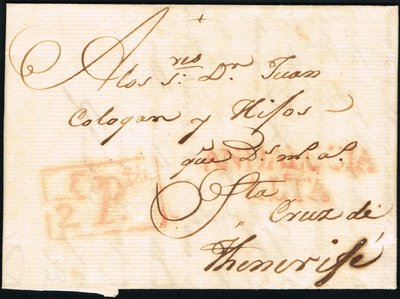 A los s.res Dn. Juan
Cologan y Hijos
que Ds. m.s a.s
Sta
Cruz de
Thenerife
ANDALUCIA
BAXA